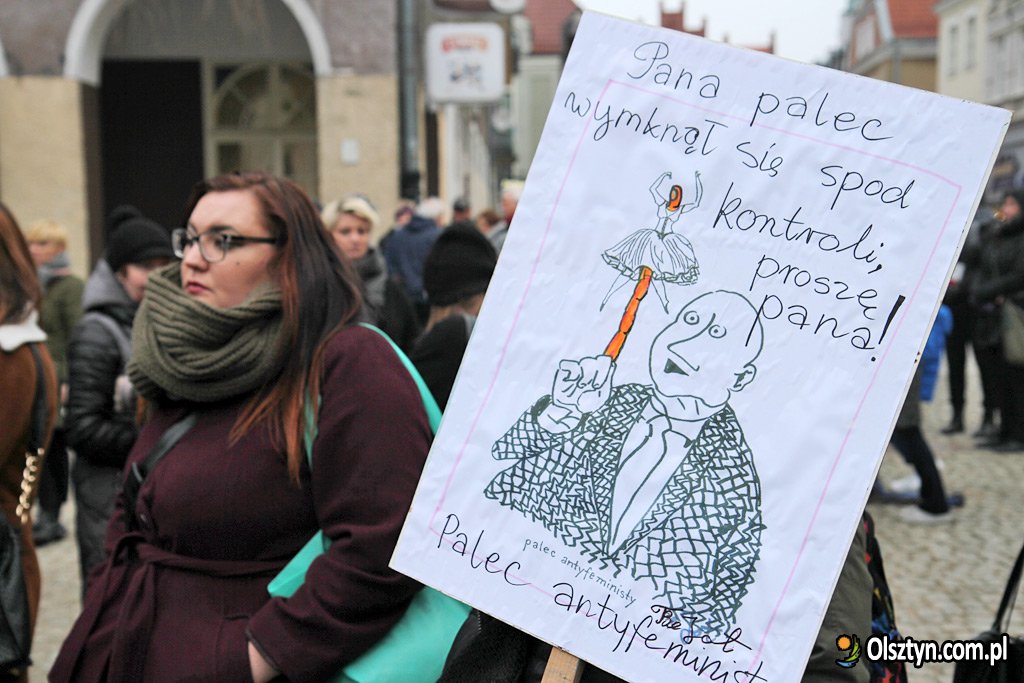 Pana palec
wymknął się spod
kontroli,
proszę
pana!
palec antyfeministy
Palec antyfeminist
Olsztyn.com.pl